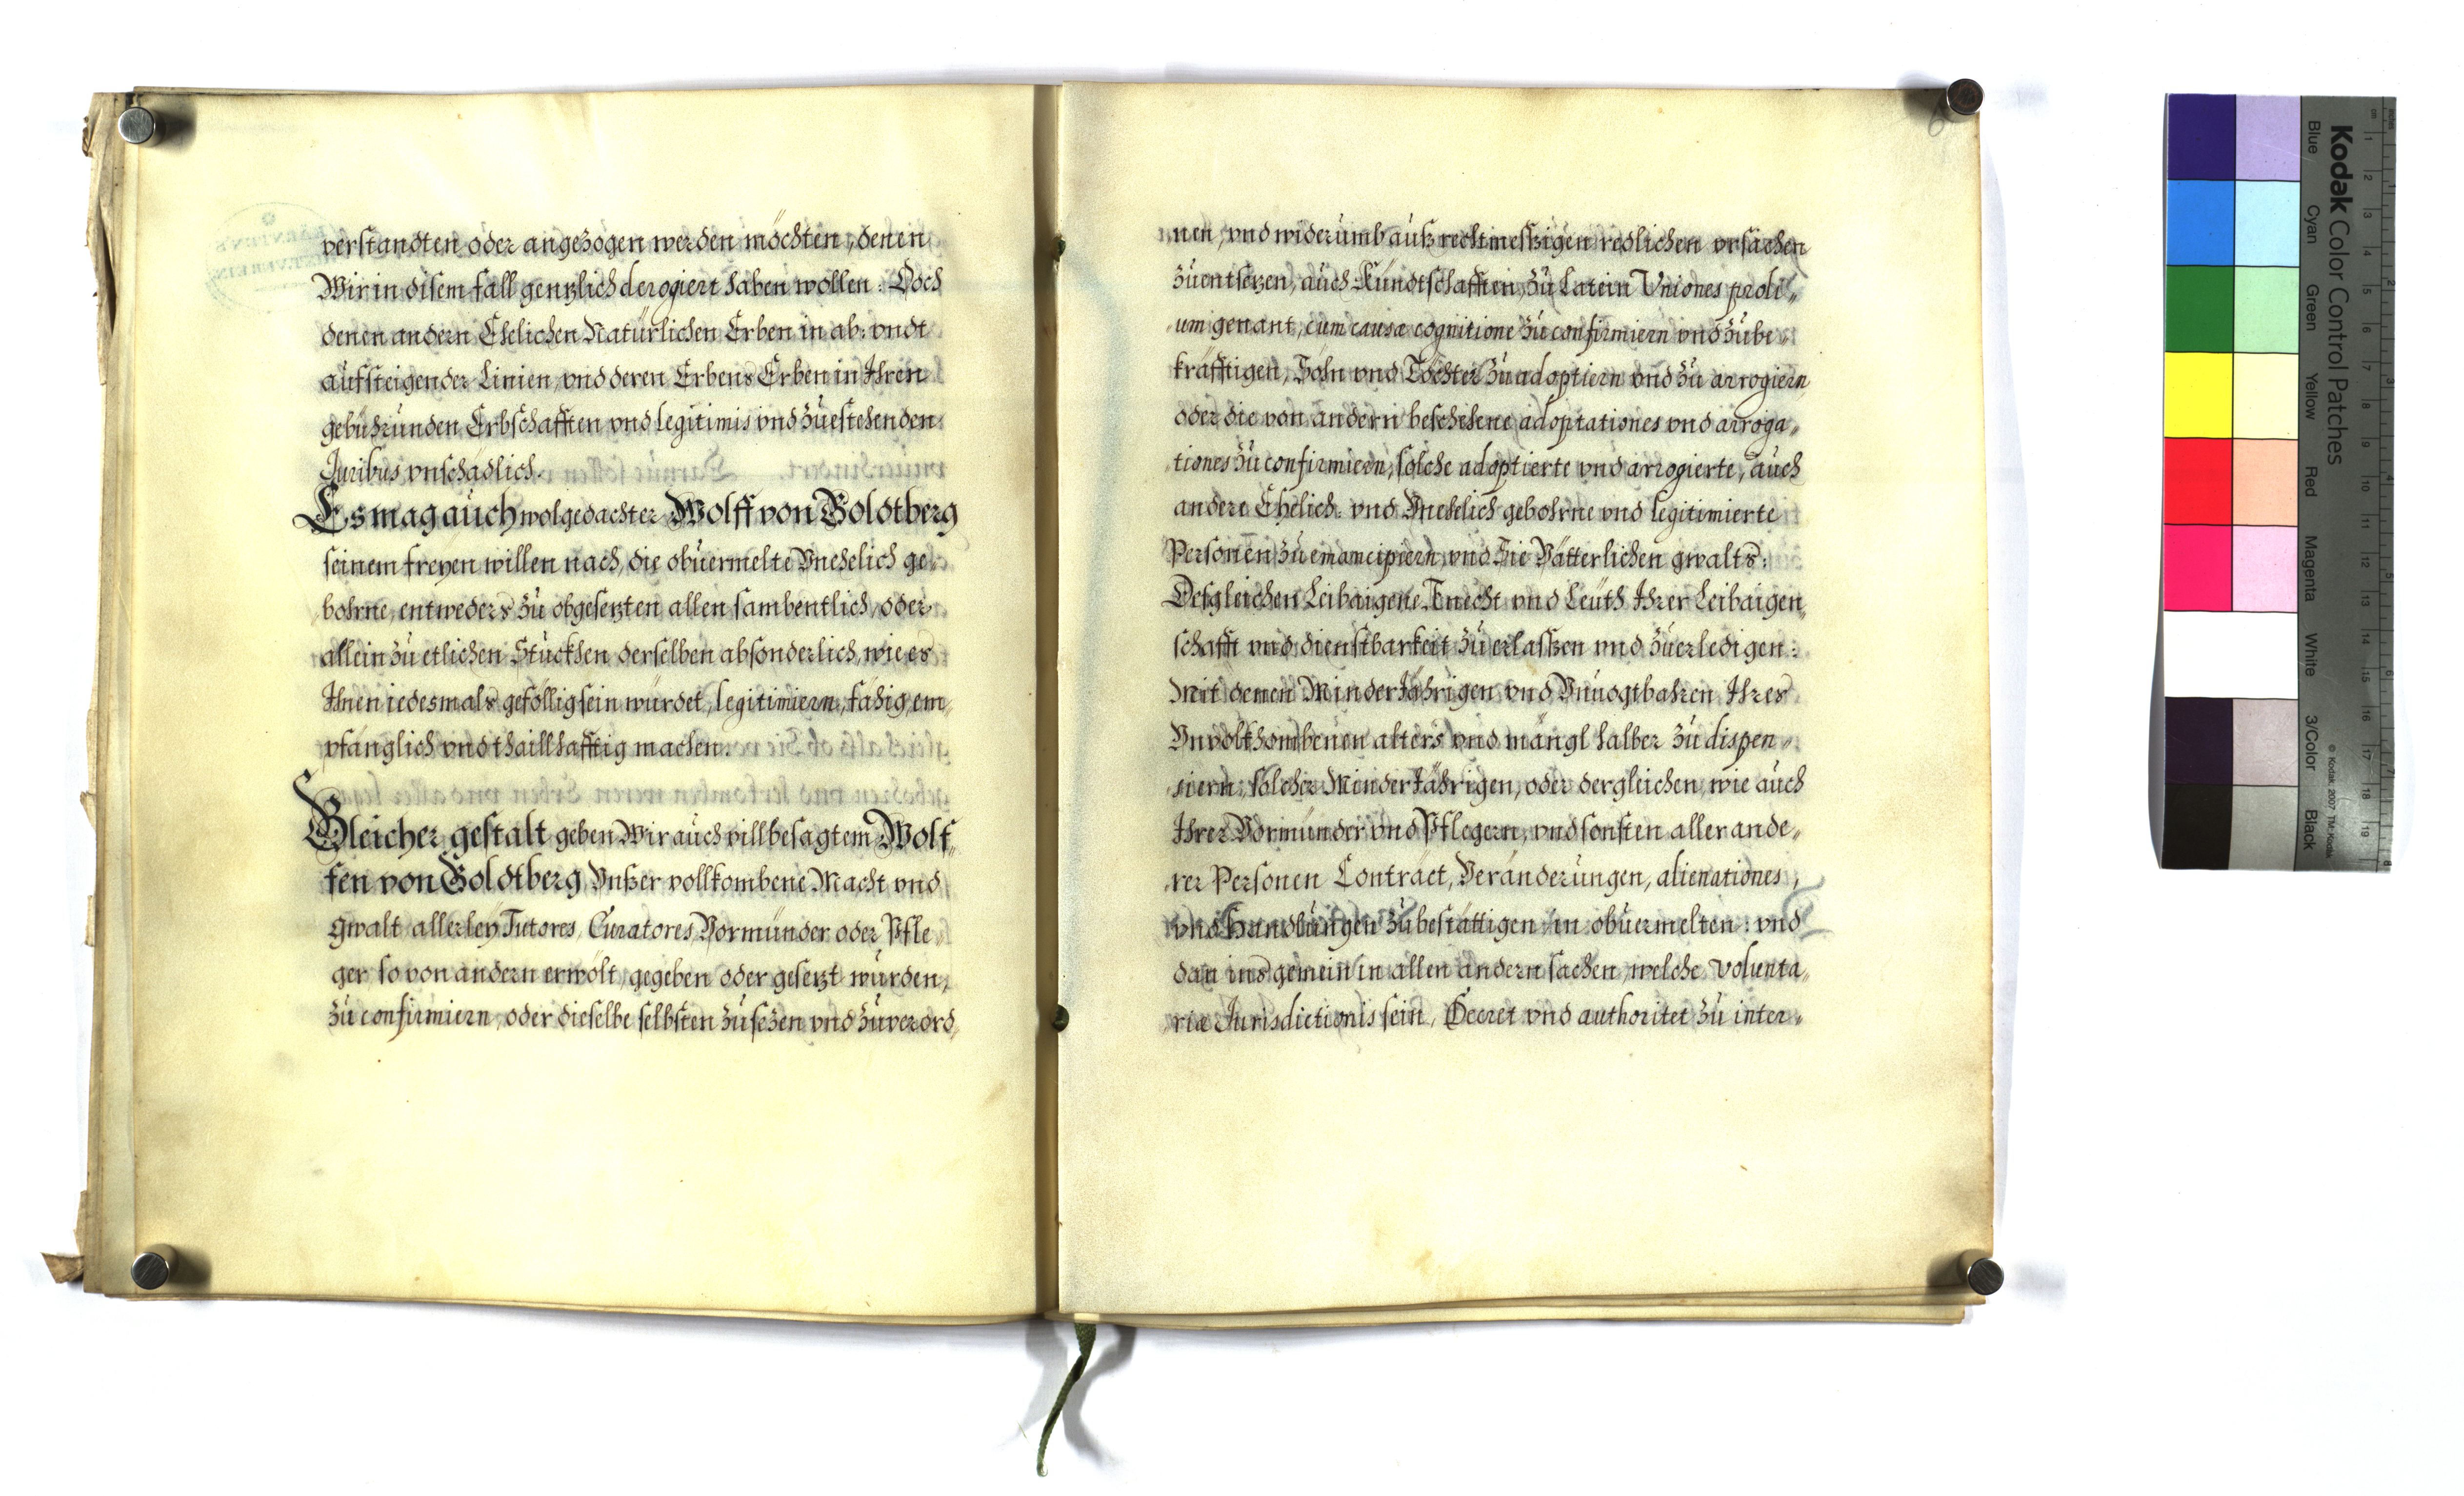 verstandten oder angezogen werden möchten, denen
Wir in disem fall genzlich derogiert haben wollen: Doch
denen andern Ehelichen Natürlichen Erben in ab: vndt
aufsteigender Linien, vnd deren Erbens Erben in Ihren
gebührunden Erbschafften vnd legitimis vnd zuestehenden
Juribus vnschädlich.
Es mag auch wolgedachter Wolff von Goldtberg
seinem freyen willen nach, die obuermelte Vnehelich ge-
bohrne, entweders zu obgesezten allen sambentlich, oder
allein zu etlichen Stuckhen derselben absonderlich, wie es
Ihnen iedesmals geföllig sein würdet, legitimiern, fähig, em-
pfänglich vnd thaillhafftig machen.
Gleicher gestalt geben Wir auch villbesagtem Wolf-
fen von Goldtberg Vnßer vollkombene Macht vnd
gwalt allerley Tutores, Curatores, Vormünder oder Pfle-
ger so von andern erwölt, gegeben oder gesezt würden,
zu confirmiern, oder dieselbe selbsten zu sezen vnd zuverord-
6
nen, vnd widerumb auß rechtmessigen redlichen vrsachen
zuentsezen, auch Kundtschafften, zu Latein Vniones proli-
um genant, cum causæ cognitione zu confirmiern vnd zube-
kräfftigen, Söhn vnd Töchter zu adoptiern vnd zu arrogiern
oder die von andern beschehene adoptationes vnd arroga-
tiones zu confirmiern, solche adoptierte vnd arrogierte, auch
andere Ehelich: vnd Vnehelich gebohrne vnd legitimierte
Personen zu emancipiern, vnd Sie Vätterlichen gwalts:
Desgleichen Leibaigene, Knecht vnd Leuth Ihrer Leibaigen-
schafft vnd dienstbarkeit zu erlassen vnd zuerledigen:
Mit denen Minderjährigen, vnd Vnuogtbahren Ihres
Vnvolkhombenen alters vnd mängl halber zu dispen-
siern; solcher Minderjährigen, oder dergleichen, wie auch
Ihrer Vormünder vnd Pflegern, vnd sonsten aller ande-
rer Personen Contract, Veränderungen, alienationes,
vnd Handlungen zubestättigen, in obuermelten: vnd
dan ins gemein in allen andern sachen, welche volunta-
riæ Jurisdictionis sein, Decret vnd authoritet zu inter-
Kodak Color Control Patches
Blue
Cyan
Green
Yellow
Red
Magenta
White
3/Color
Black
© Kodak, 2007 TM: Kodak